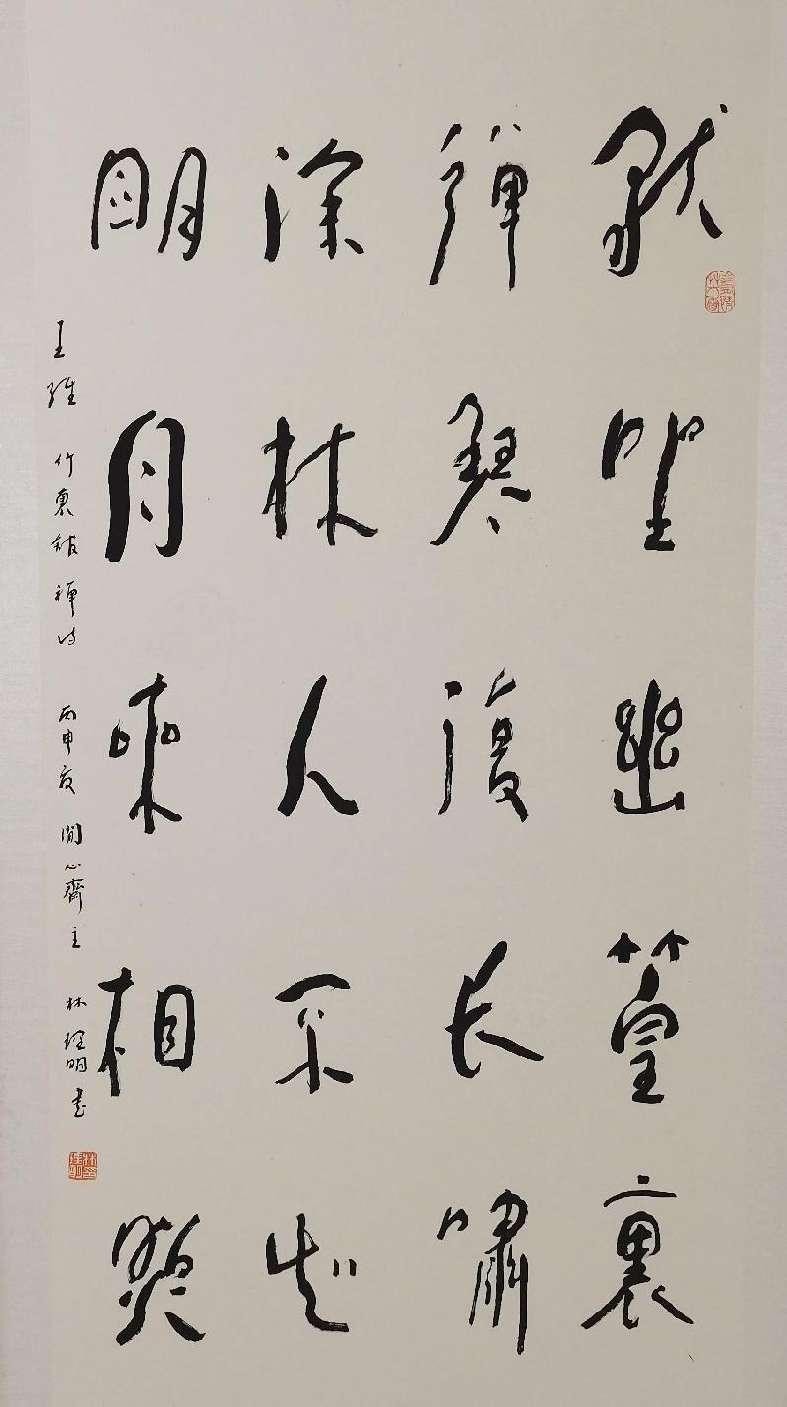 獨坐幽篁裏
彈琴復长嘯
深林人不知
明月來相照
王維 竹裏館 禪詩 丙申夏 閒心齋主 林明書